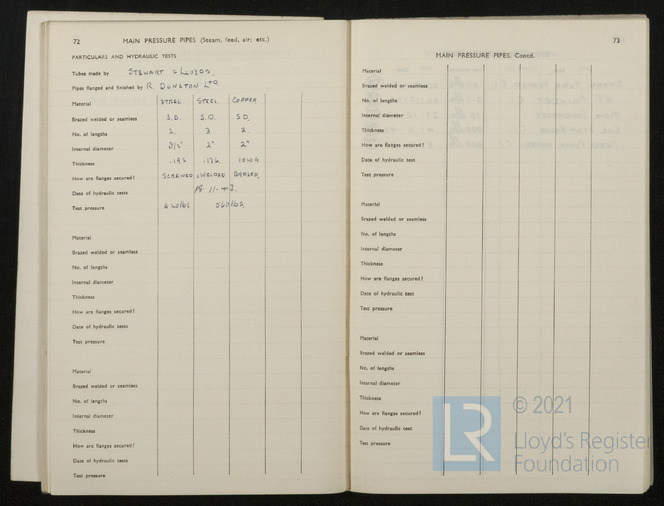 72 MAIN PRESSURE PIPES (Steam, feed, air, etc.)
PARTICULARS AND HYDRAULIC TESTS
Tubes made by STEWART & LLOYDS.
Pipes flanged and finished by R. DUNSTON LTD
Material STEEL STEEL COPPER
Brazed welded or seamless S.D. S.D. S.D.
No. of lengths 2. 3 2
Internal diameter 2" 2"
Thickness .192 .176 10 WG
How are flanges secured? SCREWED & WELDED BRAZED.
Date of hydraulic tests
Test pressure 560 lbs.
Material
Brazed welded or seamless
No. of lengths
Internal diameter
Thickness
How are flanges secured?
Date of hydraulic tests
Test pressure
Material
Brazed welded or seamless
No. of lengths
Internal diameter
Thickness
How are flanges secured?
Date of hydraulic tests
Test pressure
73
MAIN PRESSURE PIPES. Contd.
Material
Brazed welded or seamless
No. of lengths
Internal diameter
Thickness
How are flanges secured?
Date of hydraulic test
Test pressure
Material
Brazed welded or seamless
No. of lengths
Internal diameter
Thickness
How are flanges secured?
Date of hydraulic tests
Test pressure
Material
Brazed welded or seamless
No. of lengths
Internal diameter
Thickness
How are flanges secured?
Date of hydraulic tests
Test pressure
LR
© 2021
Lloyd's Register
Foundation